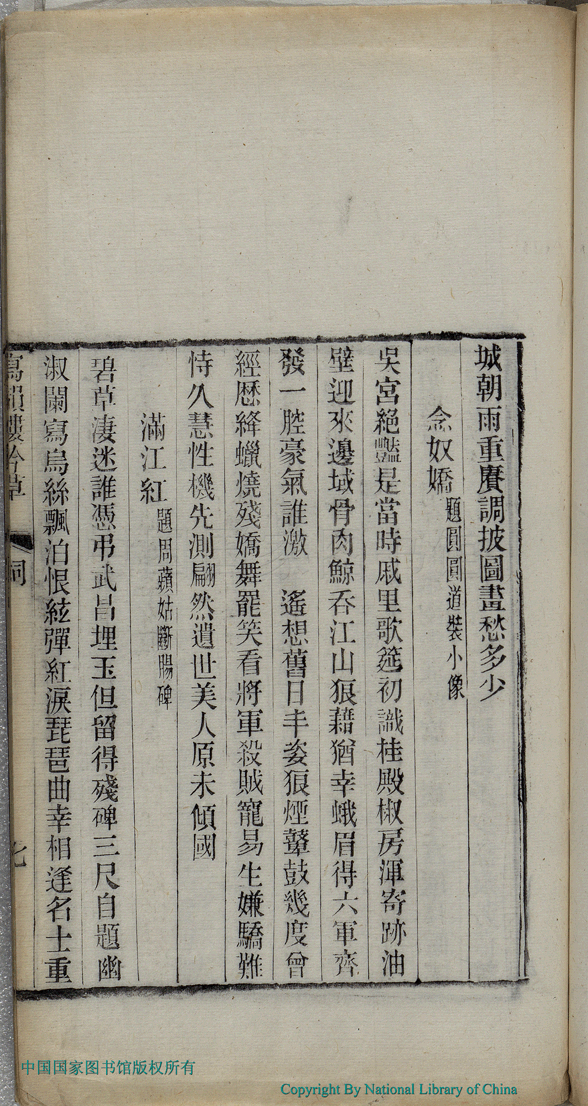 城朝雨重賡調披圖畫愁多少
念奴嬌題圓圓道裝小像
吳宮絕豔是當時戚里歌筵初識桂殿椒房渾寄跡油
壁迎來邊域骨肉鯨吞江山狼藉猶幸蛾眉得六軍齊
發一腔豪氣誰激　遙想舊日丰姿狼煙鼙鼓幾度曾
經歷絳蠟燒殘嬌舞罷笑看將軍殺賊寵易生嫌驕難
恃久慧性機先測翩然遺世美人原未傾國
滿江紅題周蘋姑斷腸碑
碧草淒迷誰憑弔武昌埋玉但留得殘碑三尺自題幽
淑闌寫烏絲飄泊恨絃彈紅淚琵琶曲幸相逢名士重
寫韻樓吟草
詞
七
中国国家图书馆版权所有
Copyright By National Library of China